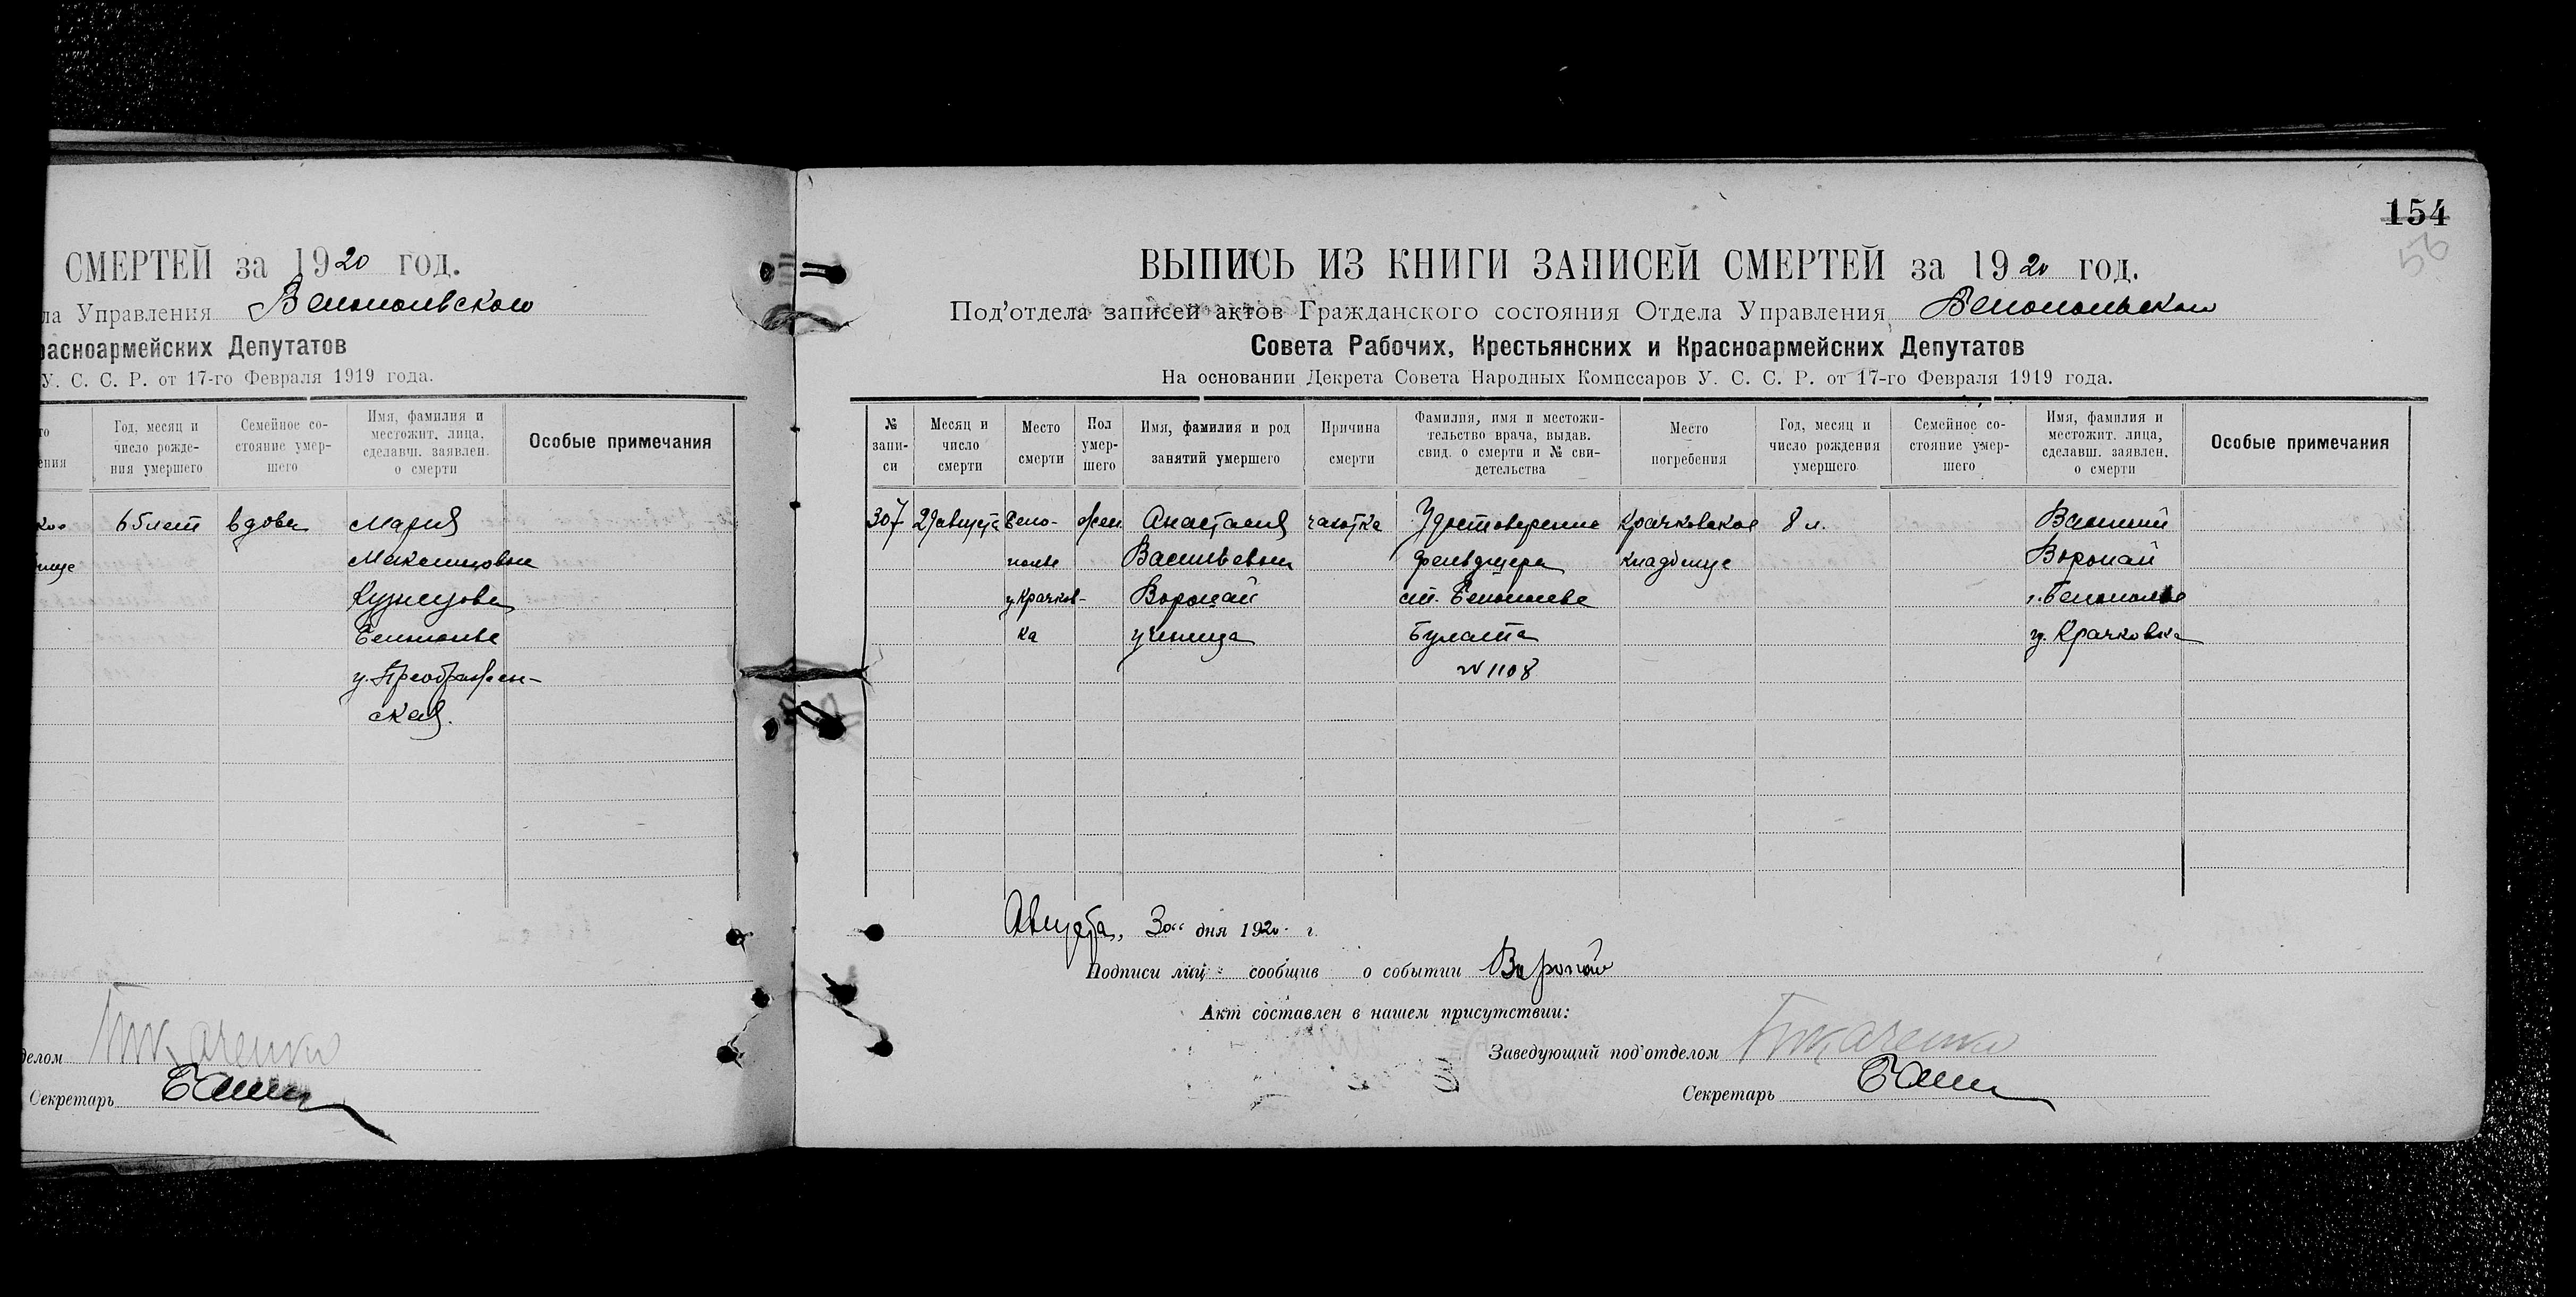 СМЕРТЕЙ за 1920 год.
ла Управления Белопольского
расноармейских Депутатов
У. С. С. Р. от 17-го Февраля 1919 года.
то
ения
Год, месяц и
число рожде-
ния умершего
Семейное со-
стояние умер-
шего
Имя, фамилия и
местожит. лица,
сделавш. заявлен.
о смерти
Особые примечания
кое 65 лет вдова Мария
бище Максимовна
Кузнецова
Белополье
у. Преображен-
ская.
делом Ткаченко
Секретарь
154
56
ВЫПИСЬ ИЗ КНИГИ ЗАПИСЕЙ СМЕРТЕЙ за 1920 год.
Под'отдела записей актов Гражданского состояния Отдела Управления Белопольского
Совета Рабочих, Крестьянских и Красноармейских Депутатов
На основании Декрета Совета Народных Комиссаров У. С. С. Р. от 17-го Февраля 1919 года.
№
запи-
си
Месяц и
число
смерти
Место
смерти
Пол
умер-
шего
Имя, фамилия и род
занятий умершего
Причина
смерти
Фамилия, имя и местожи-
тельство врача, выдав.
свид. о смерти и № сви-
детельства
Место
погребения
Год, месяц и
число рождения
умершего
Семейное со-
стояние умер-
шего
Имя, фамилия и
местожит. лица,
сделавш. заявлен.
о смерти
Особые примечания
307 29 августа Бело- жен. Анастасия чахотка Удостоверение Крачковское 8 л. Василий
полье Васильевна фельдшера кладбище Воропай
у. Крачков- Воропай ст. Белополье г. Белополье
ка ученица Булата у. Крачковка
№ 1108
Августа, 30" дня 1920 г.
Подписи лиц сообщив о событии Воропай
Акт составлен в нашем присутствии:
Заведующий под'отделом Ткаченко
Секретарь